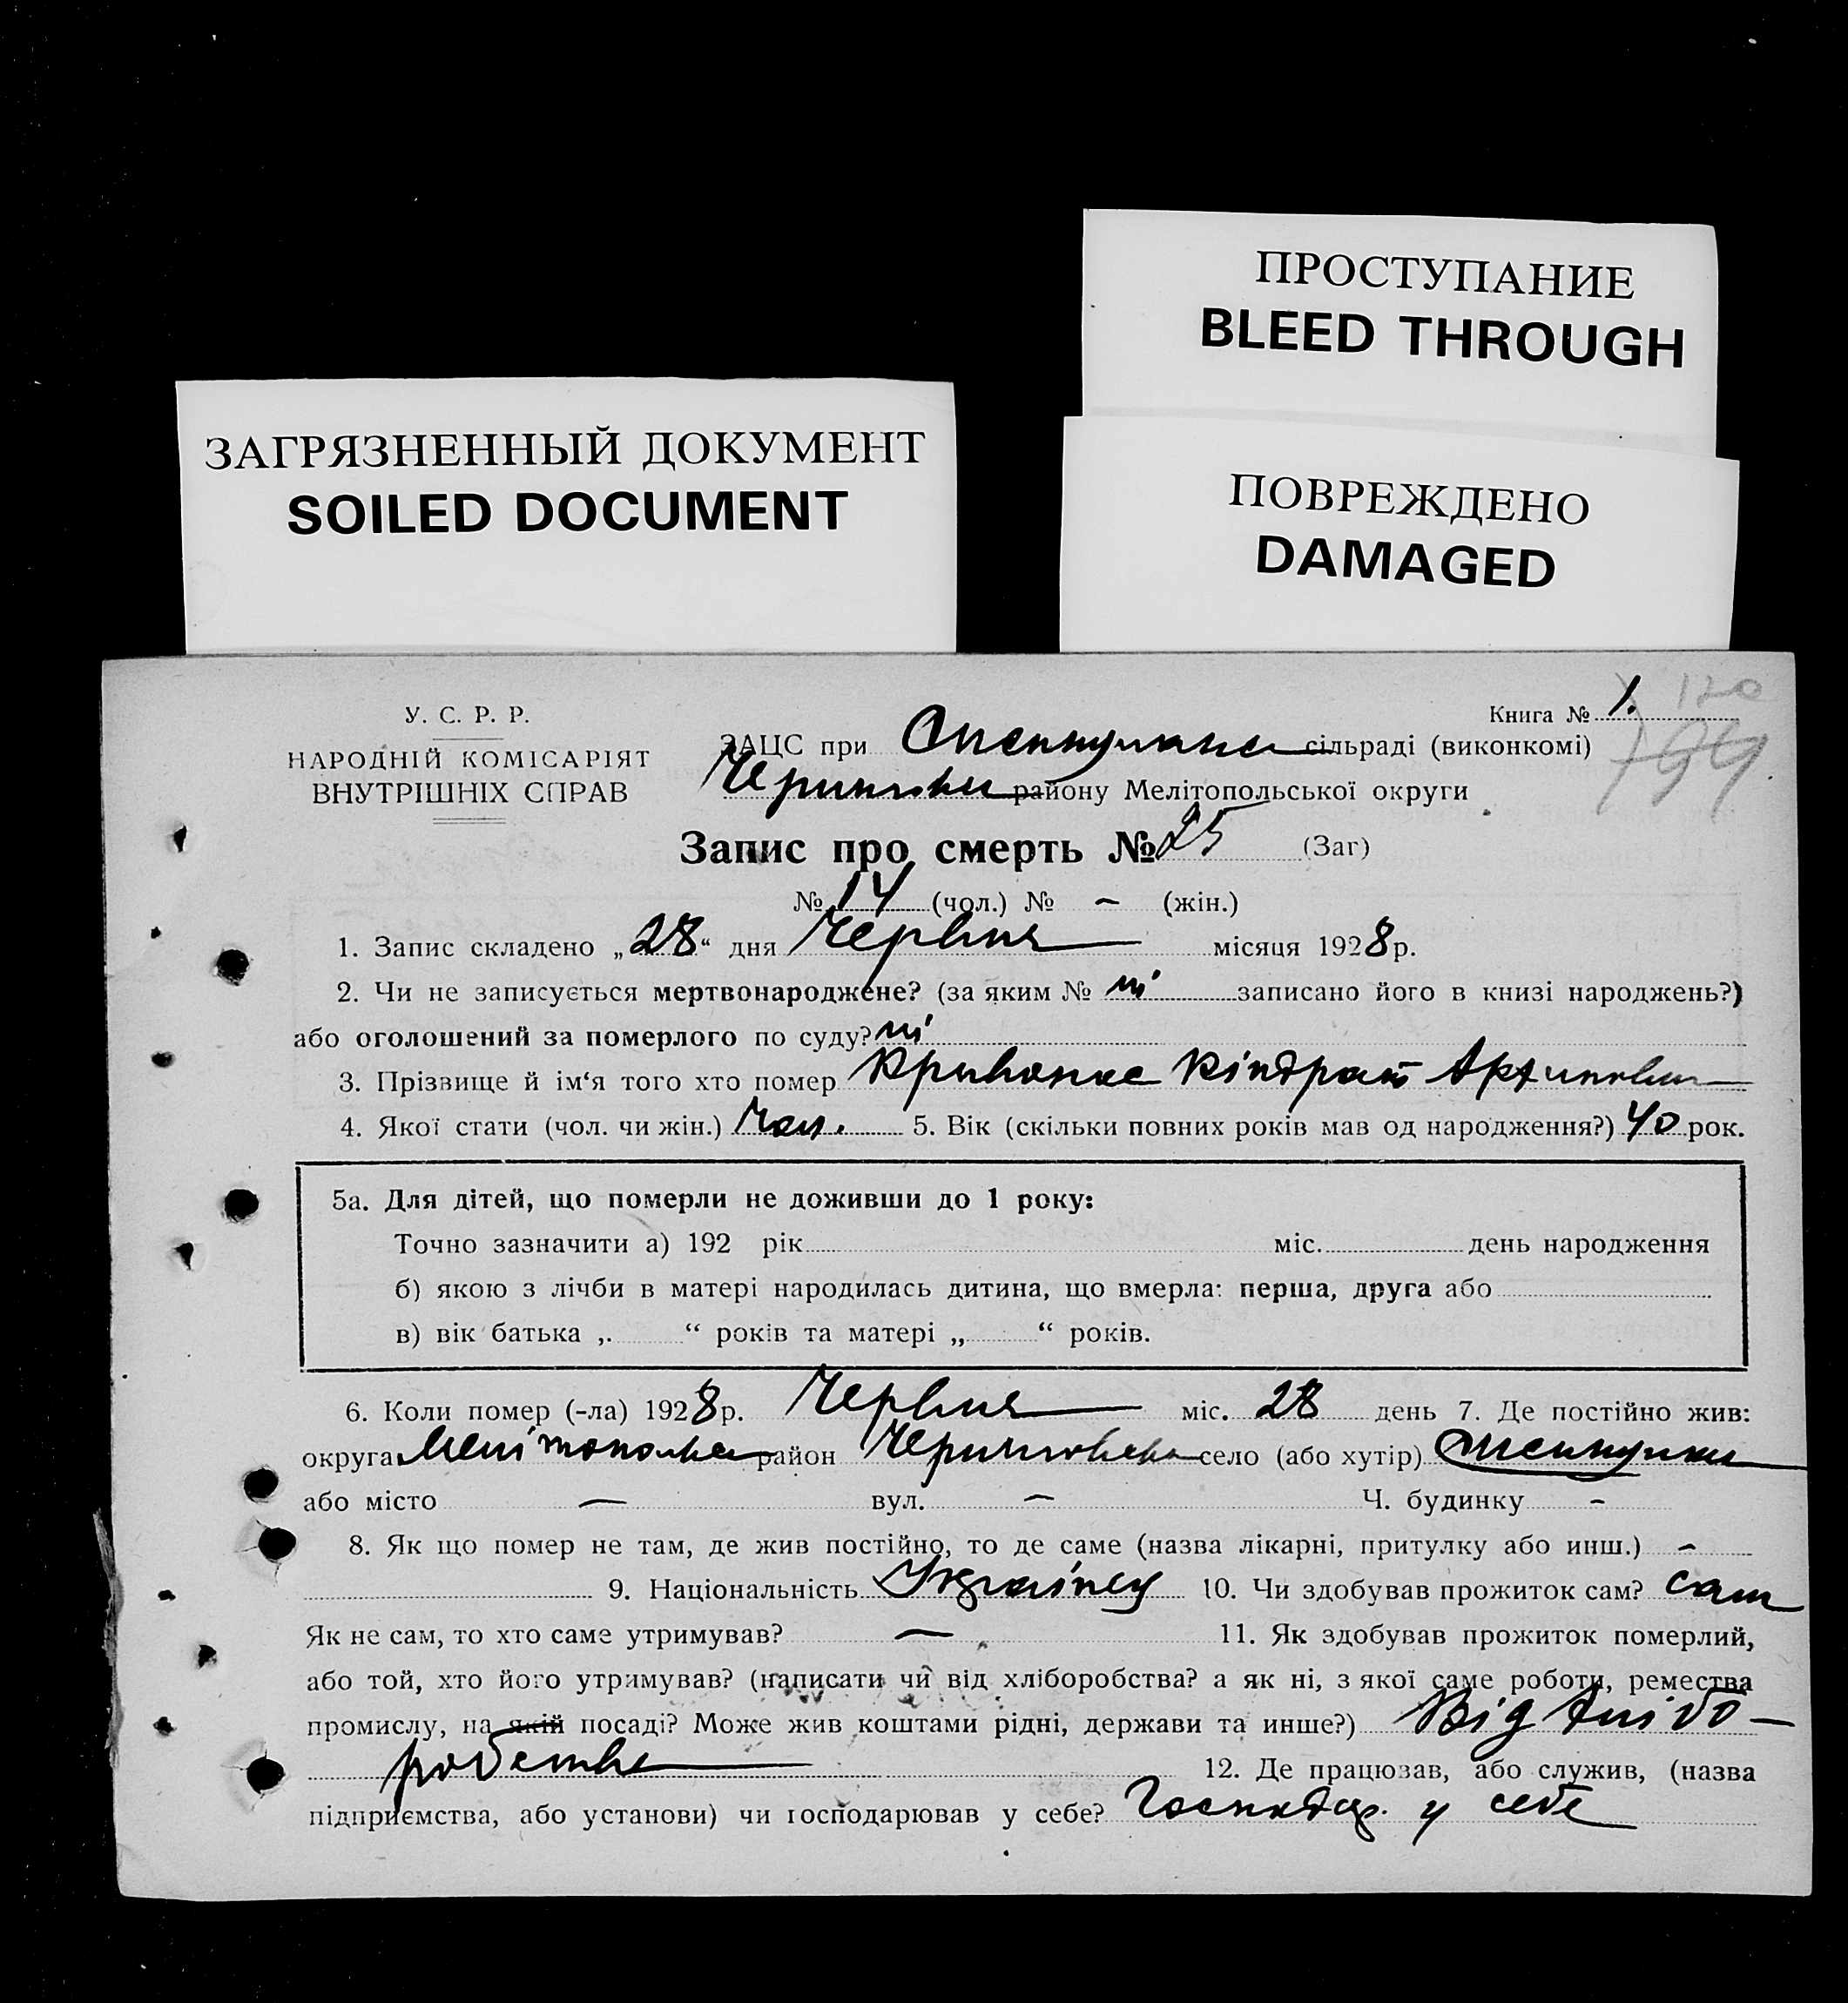 ПРОСТУПАНИЕ
BLEED THROUGH
ЗАГРЯЗНЕННЫЙ ДОКУМЕНТ
SOILED DOCUMENT
ПОВРЕЖДЕНО
DAMAGED
У. С. Р. Р.
НАРОДНІЙ КОМІСАРІЯТ
ВНУТРІШНІХ СПРАВ
Книга № 1.
120
ЗАЦС при сільраді (виконкомі)
району Мелітопольської округи
Запис про смерть № 25 (Заг)
№ 14 (чол.) № — (жін.)
1. Запис складено „28“ дня Червня місяця 1928 р.
2. Чи не записується мертвонароджене? (за яким № ні записано його в книзі народжень?)
або оголошений за померлого по суду? ні
3. Прізвище й ім‘я того хто помер Кіндрат
4. Якої стати (чол. чи жін.) Чол. 5. Вік (скільки повних років мав од народження?) 40 рок.
5а. Для дітей, що померли не доживши до 1 року:
Точно зазначити а) 192 рік міс. день народження
б) якою з лічби в матері народилась дитина, що вмерла: перша, друга або
в) вік батька „ “ років та матері „ “ років.
6. Коли помер (-ла) 1928 р. Червня міс. 28 день 7. Де постійно жив:
округа район село (або хутір)
або місто — вул. — Ч. будинку -
8. Як що помер не там, де жив постійно, то де саме (назва лікарні, притулку або инш.) -
9. Національність Українец 10. Чи здобував прожиток сам? сам
Як не сам, то хто саме утримував? — 11. Як здобував прожиток померлий,
або той, хто його утримував? (написати чи від хліборобства? а як ні, з якої саме роботи, ремества
промислу, на якій посаді? Може жив коштами рідні, держави та инше?) Від хлібо-
робства 12. Де працював, або служив, (назва
підприємства, або установи) чи господарював у себе? Господар. у себе